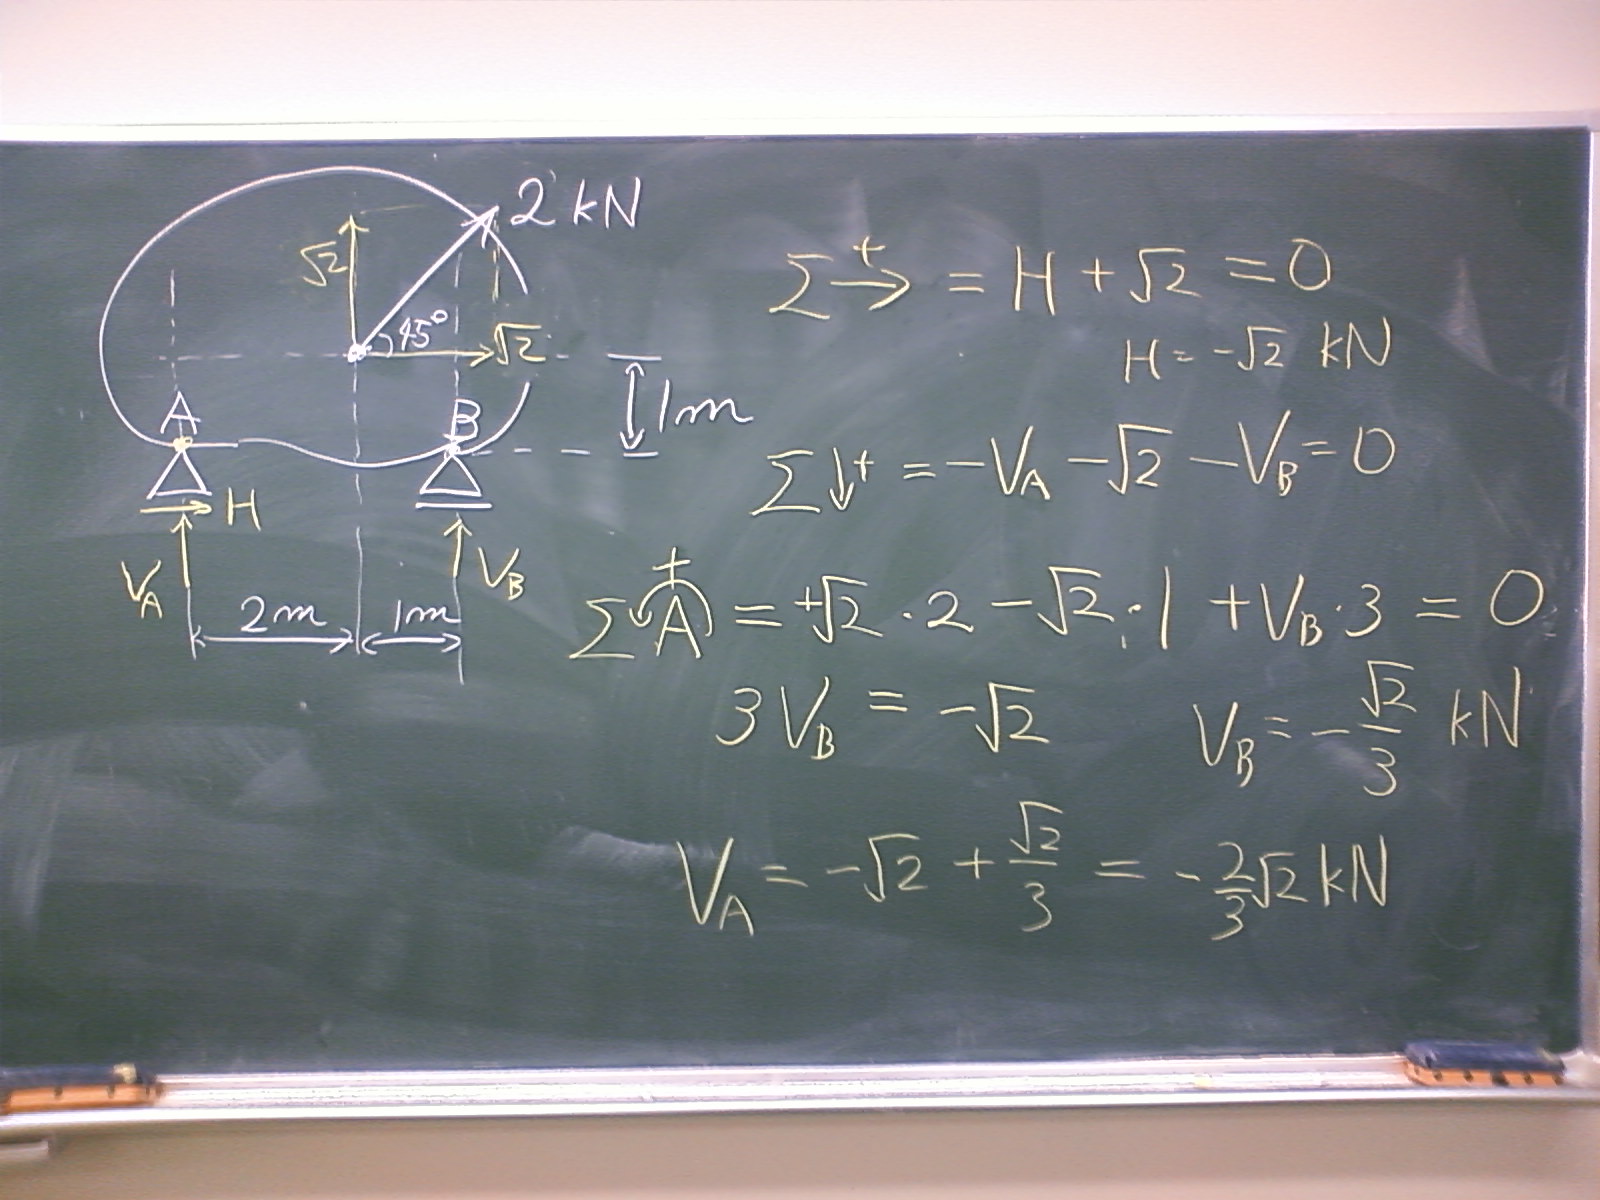 2 kN
√2
45°
√2
1m
A
B
H
V_A
V_B
2m
1m
Σ→+ = H + √2 = 0
H = -√2 kN
Σ↓+ = -V_A - √2 - V_B = 0
Σ↶+A = +√2 · 2 - √2 · 1 + V_B · 3 = 0
3V_B = -√2
V_B = -√2/3 kN
V_A = -√2 + √2/3 = -2/3 √2 kN